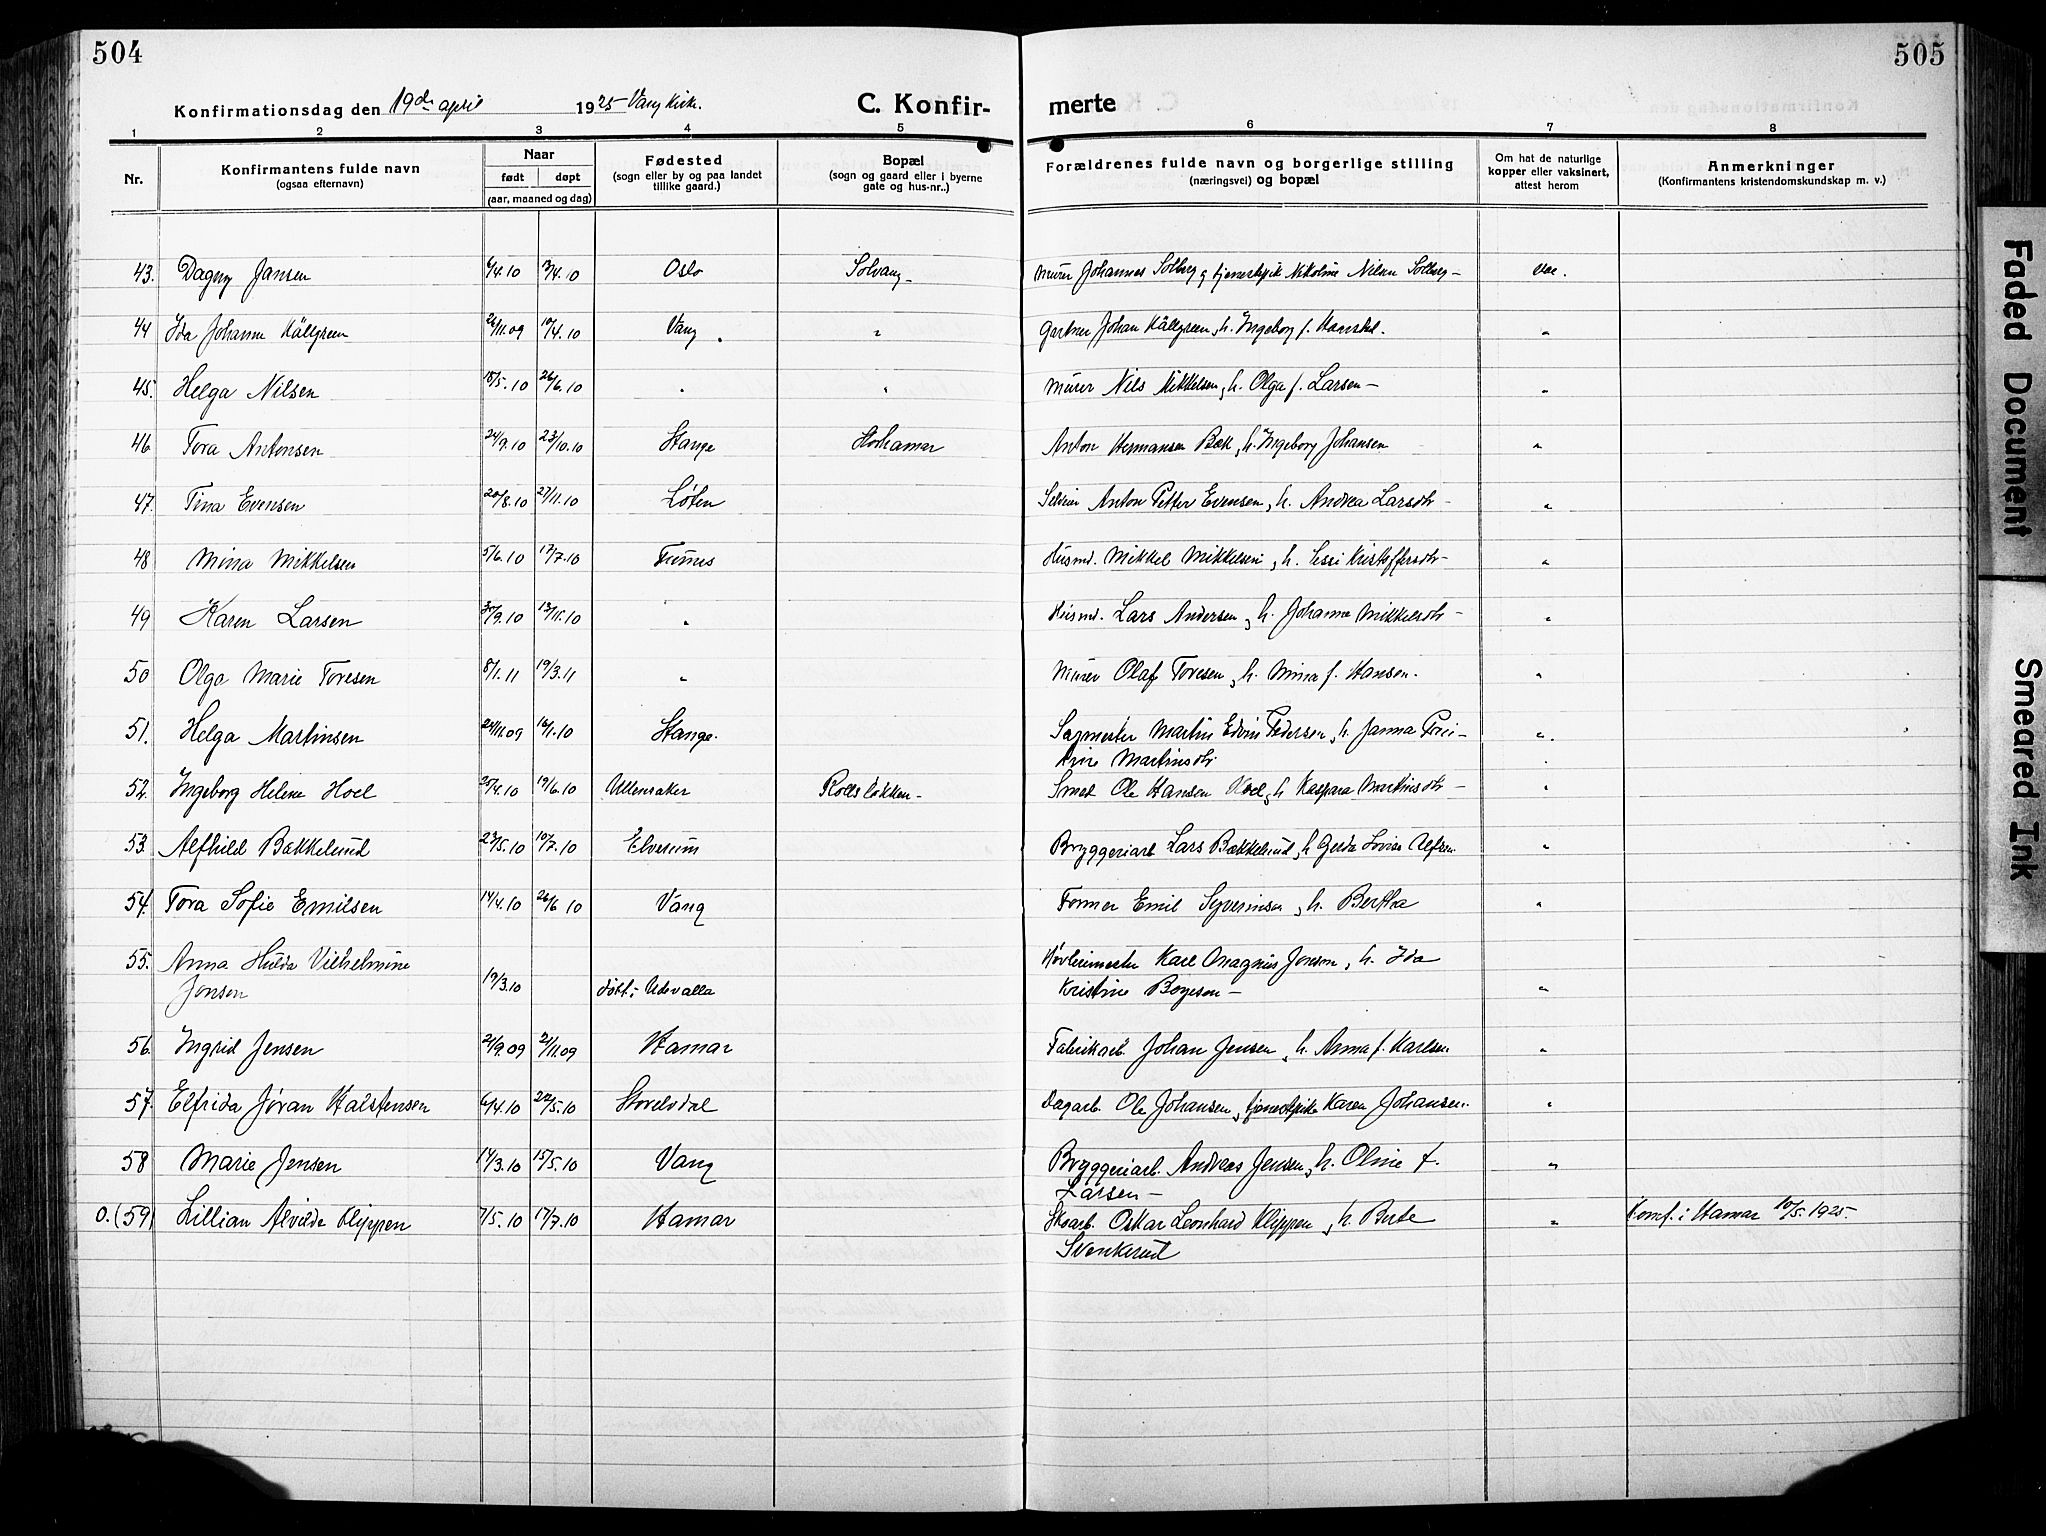 504
505
Konfirmationsdag den 19de april 1925 Vang kirk.
C. Konfirmerte
1 2 3 4 5 6 7 8
Nr.
Konfirmantens fulde navn
(ogsaa efternavn)
Naar
født døpt
(aar, maaned og dag)
Fødested
(sogn eller by og paa landet
tillike gaard.)
Bopæl
(sogn og gaard eller i byerne
gate og hus-nr..)
Forældrenes fulde navn og borgerlige stilling
(næringsvei) og bopæl
Om hat de naturlige
kopper eller vaksinert,
attest herom
Anmerkninger
(Konfirmantens kristendomskundskap m. v.)
43. Dagny Jansen 6/4.10 /4.10 Oslo Solvang- Murer Johannes Solberg og tjenestepik Nikoline Nilsen Solberg- vac.
44 Ida Johanne Källgreen 26/11.09 10/4.10 Vang " Gartner Johan Källgreen, h. Ingeborg f. "
45. Helga Nilsen 18/5.10 26/6.10 " " Murer Nils Mikkelsen, h. Olga f. Larsen- "
46 Tora Antonsen 24/9.10 23/10.10 Stange Storhamar Anton Hermansen Bæk, h. Ingeborg Johansen "
47. Tina Evensen 20/8.10 27/11.10 Løten Anton Petter Evensen, h. Andrea Larsdtr- "
48 Mina Mikkelsen 5/6.10 17/7.10 Furnes Husmd. Mikkel Mikkelsen, h. Sessi Kristoffersdtr- "
49 Karen Larsen 30/9.10 13/11.10 " Husmd. Lars Andersen, h. Johanne Mikkelsdtr- "
50 Olga Marie Toresen 8/1.11 19/3.11 " Murer Olaf Toresen, h. Mina f. Hansen. "
51. Helga Martinsen 24/11.09 16/1.10 Stange. Sagmester Martin Edvin Pedersen, h. Janna Petri-
trine Martinsdtr "
52. Ingeborg Helene Hoel 25/4.10 19/6.10 Ullensaker Rollsløkken- Smed Ole Hansen Hoel, h Kaspara Martinsdtr- "
53. Alfhild Bækkelund 23/5.10 10/7.10 Elverum Bryggeriarb. Lars Bækkelund, h Gerda Lovise Alfsen "
54. Tora Sofie Emilsen 14/4.10 26/6 10 Vang Former Emil Syverinsen, h. Bertha "
55. Anna Hulda Vilhelmine
Jonsen 19/3.10 født i Udevalla Høvlerimester Karl Magnus Jonson, h. Ida
Kristine Boyeson- "
56. Ingrid Jensen 21/9.09 21/11.09 Hamar Fabrikarb. Johan Jensen, h. Anna f. Karlsen "
57. Elfrida Jøran Halstensen 6/4.10 22/5.10 Storelvdal Dagarb. Ole Johansen, tjenestepike Karen Johansen. "
58 Marie Jensen 14/3.10 15/5.10 Vang Bryggeriarb. Andreas Jensen, h. Oline f.
Larsen- "
0.(59) Lillian Alvilde Klippen 7/5.10 17/7.10 Hamar Skoarb. Oskar Leonhard Klippen, h. Berte
Svenkerud " Konf. i Hamar 10/5.1925.
Faded Document
Smeared Ink